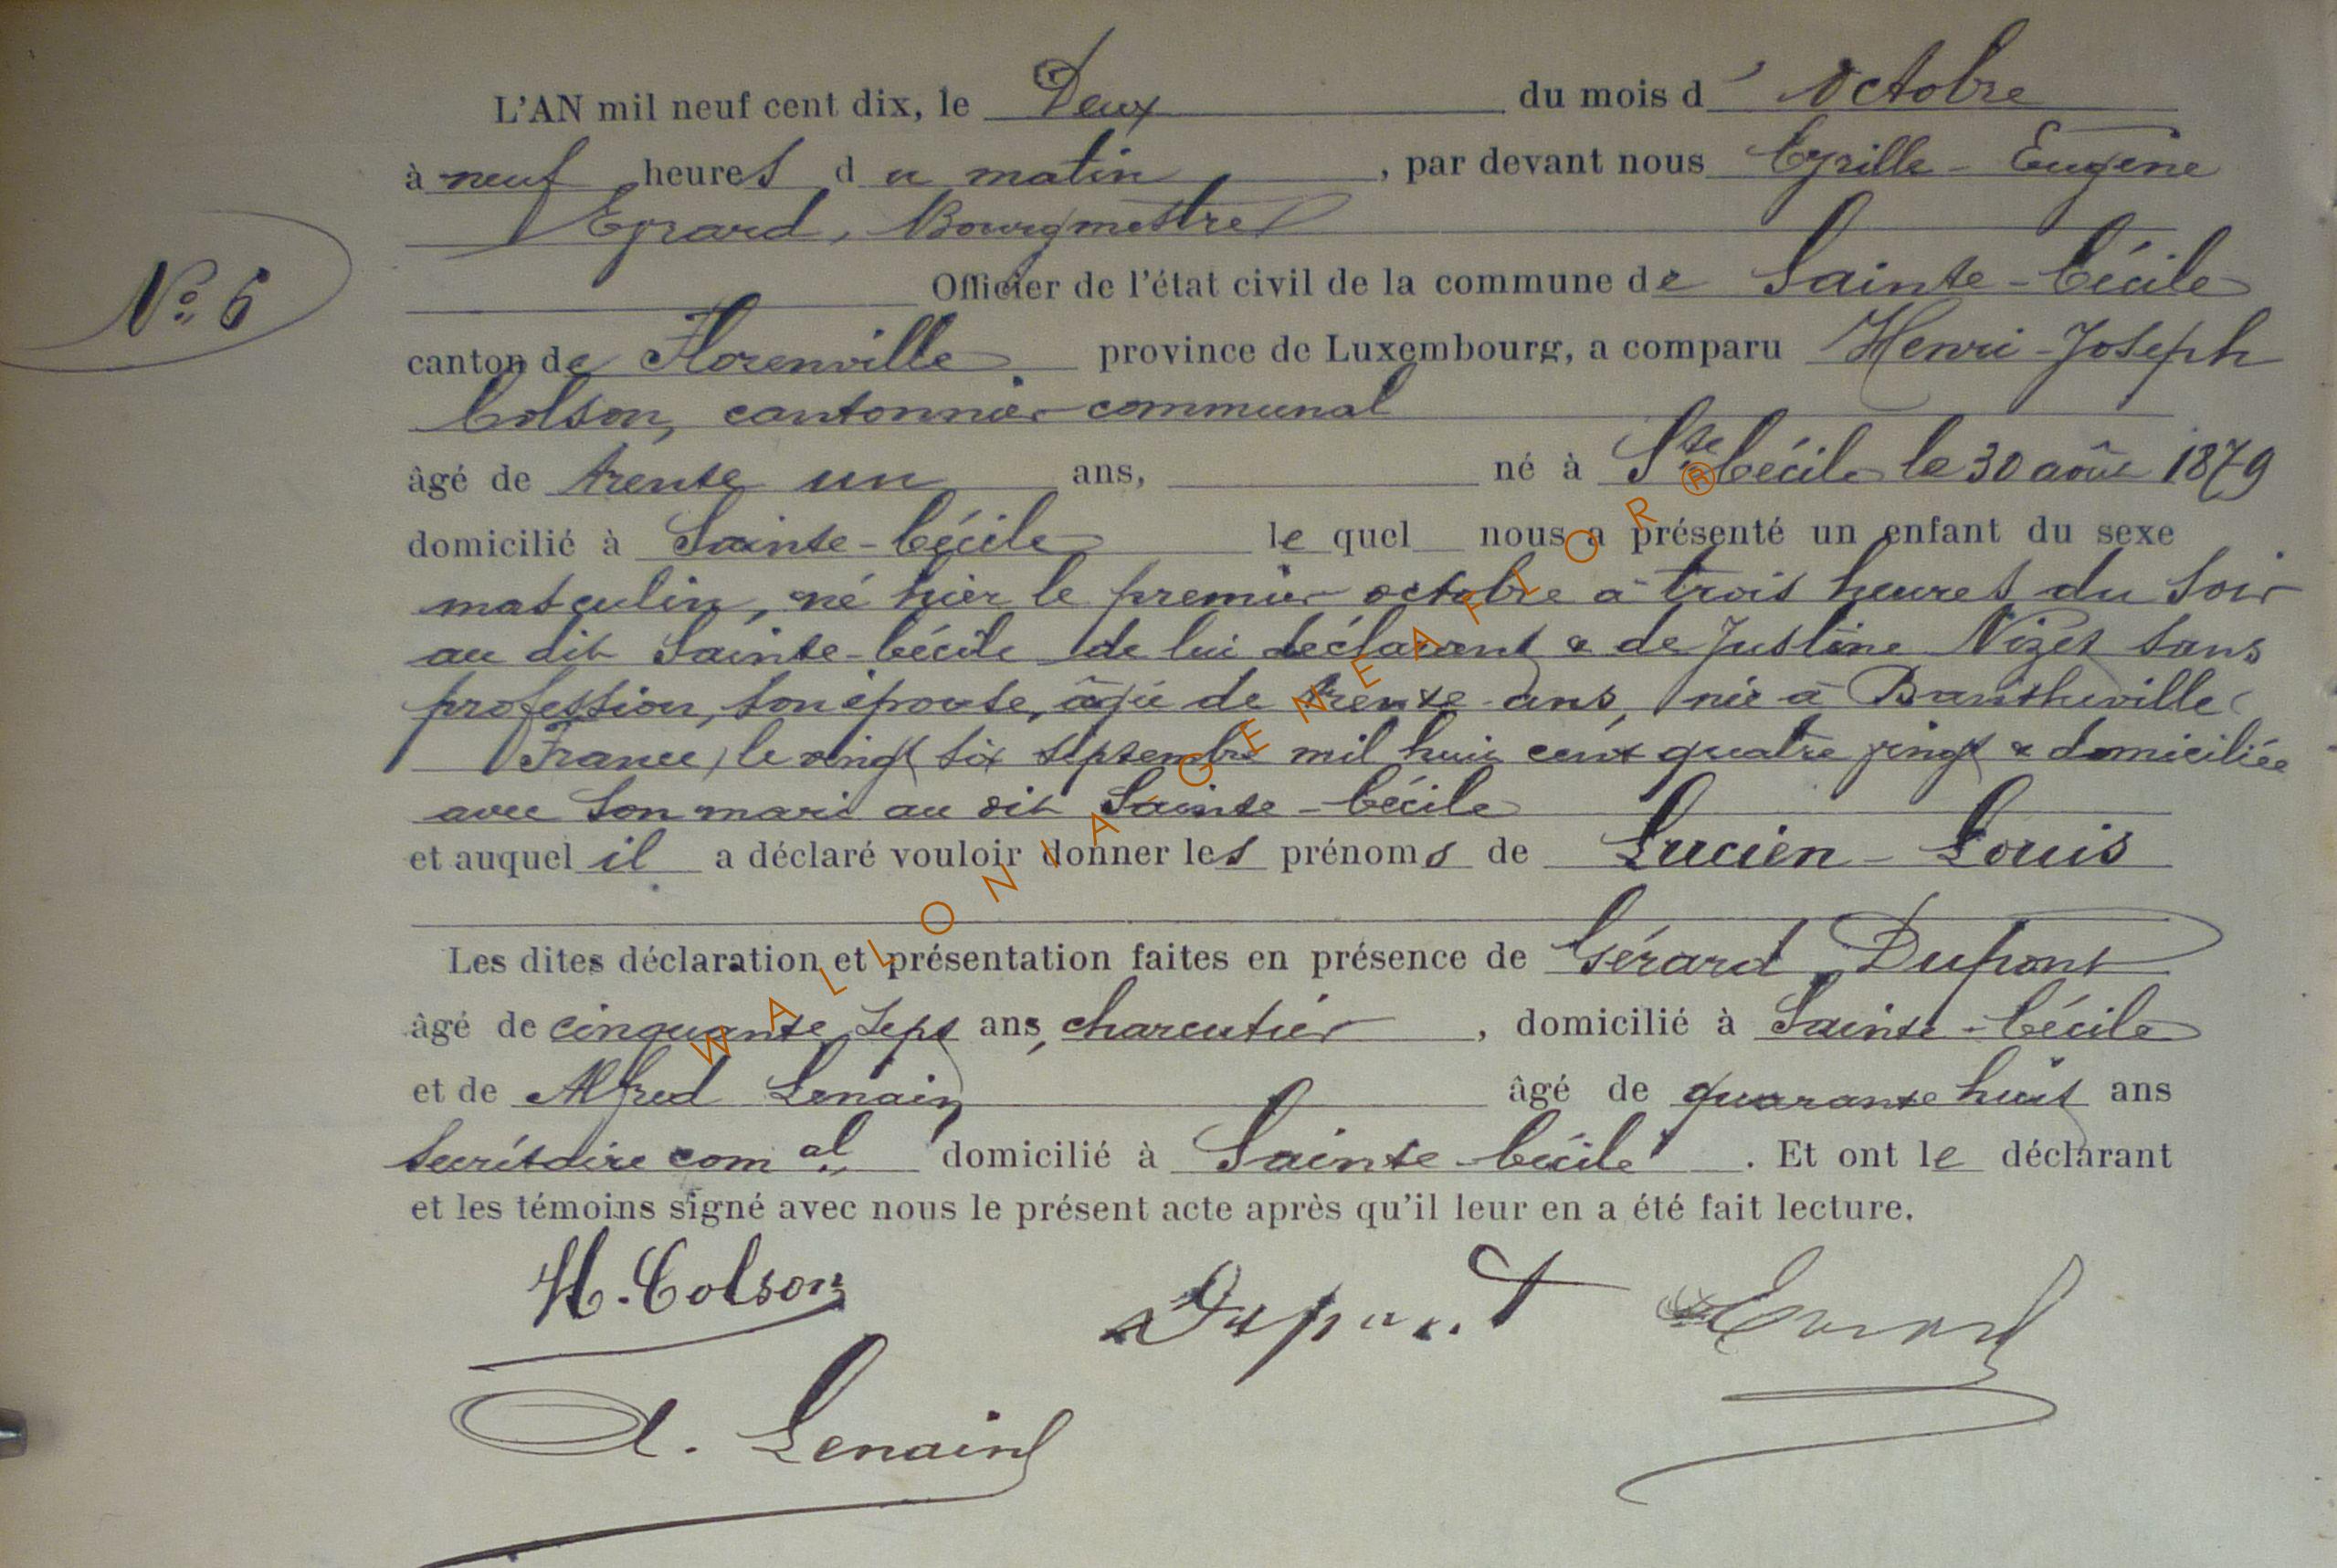 L'AN mil neuf cent dix, le Deux du mois d' Octobre
à neuf heures du matin, par devant nous Cyrille-Eugène
Evrard, Bourgmestre
Officier de l'état civil de la commune de Sainte-Cécile
N° 6
canton de Florenville province de Luxembourg, a comparu Henri-Joseph
Colson, cantonnier communal
âgé de trente un ans, né à Ste Cécile le 30 août 1879
domicilié à Sainte-Cécile lequel nous a présenté un enfant du sexe
masculin, né hier le premier octobre à trois heures du soir
au dit Sainte-Cécile de lui déclarant & de Justine Nizet sans
profession, son épouse, âgée de trente ans, née à Bantheville
(France) le vingt six septembre mil huit cent quatre vingt & domiciliée
avec son mari au dit Sainte-Cécile
et auquel il a déclaré vouloir donner les prénoms de Lucien-Louis
Les dites déclaration et présentation faites en présence de Gérard Dupont
âgé de cinquante sept ans, charcutier, domicilié à Sainte-Cécile
et de Alfred Lenain âgé de quarante huit ans
secrétaire comal, domicilié à Sainte-Cécile. Et ont le déclarant
et les témoins signé avec nous le présent acte après qu'il leur en a été fait lecture.
H. Colson Dupont Evrard
A. Lenain
WALLONIA GENEAFLOR®